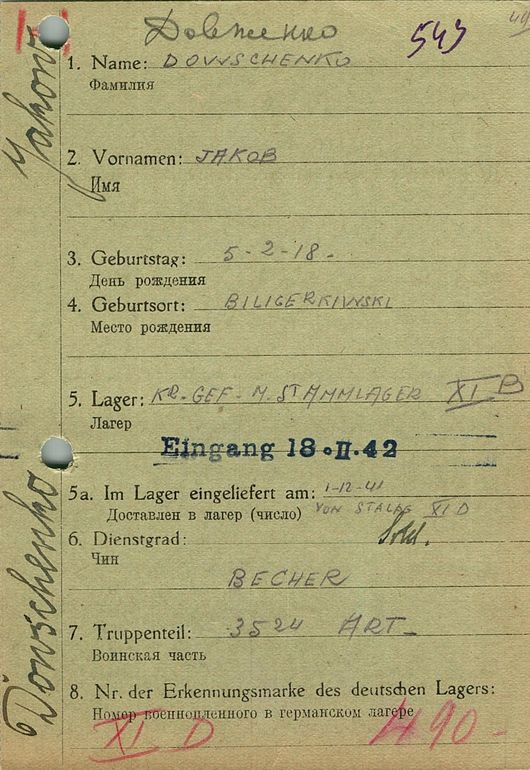 Довженко 543 49
1. Name: DOWSCHENKO
Фамилия
Jakow
2. Vornamen: JAKOB
Имя
3. Geburtstag: 5-2-18-
День рождения
4. Geburtsort: BILIGERKIWSKI
Место рождения
5. Lager: KR-GEF-M. STAMMLAGER XI B
Лагер
Eingang 18. II. 42
5a. Im Lager eingeliefert am: 1-12-41
Доставлен в лагер (число) VON STALAG XI D
6. Dienstgrad: Sold.
Чин
BECHER
Dowschenko
7. Truppenteil: 3524 ART-
Воинская часть
8. Nr. der Erkennungsmarke des deutschen Lagers:
Номер военнопленного в германском лагере
XI D 490-